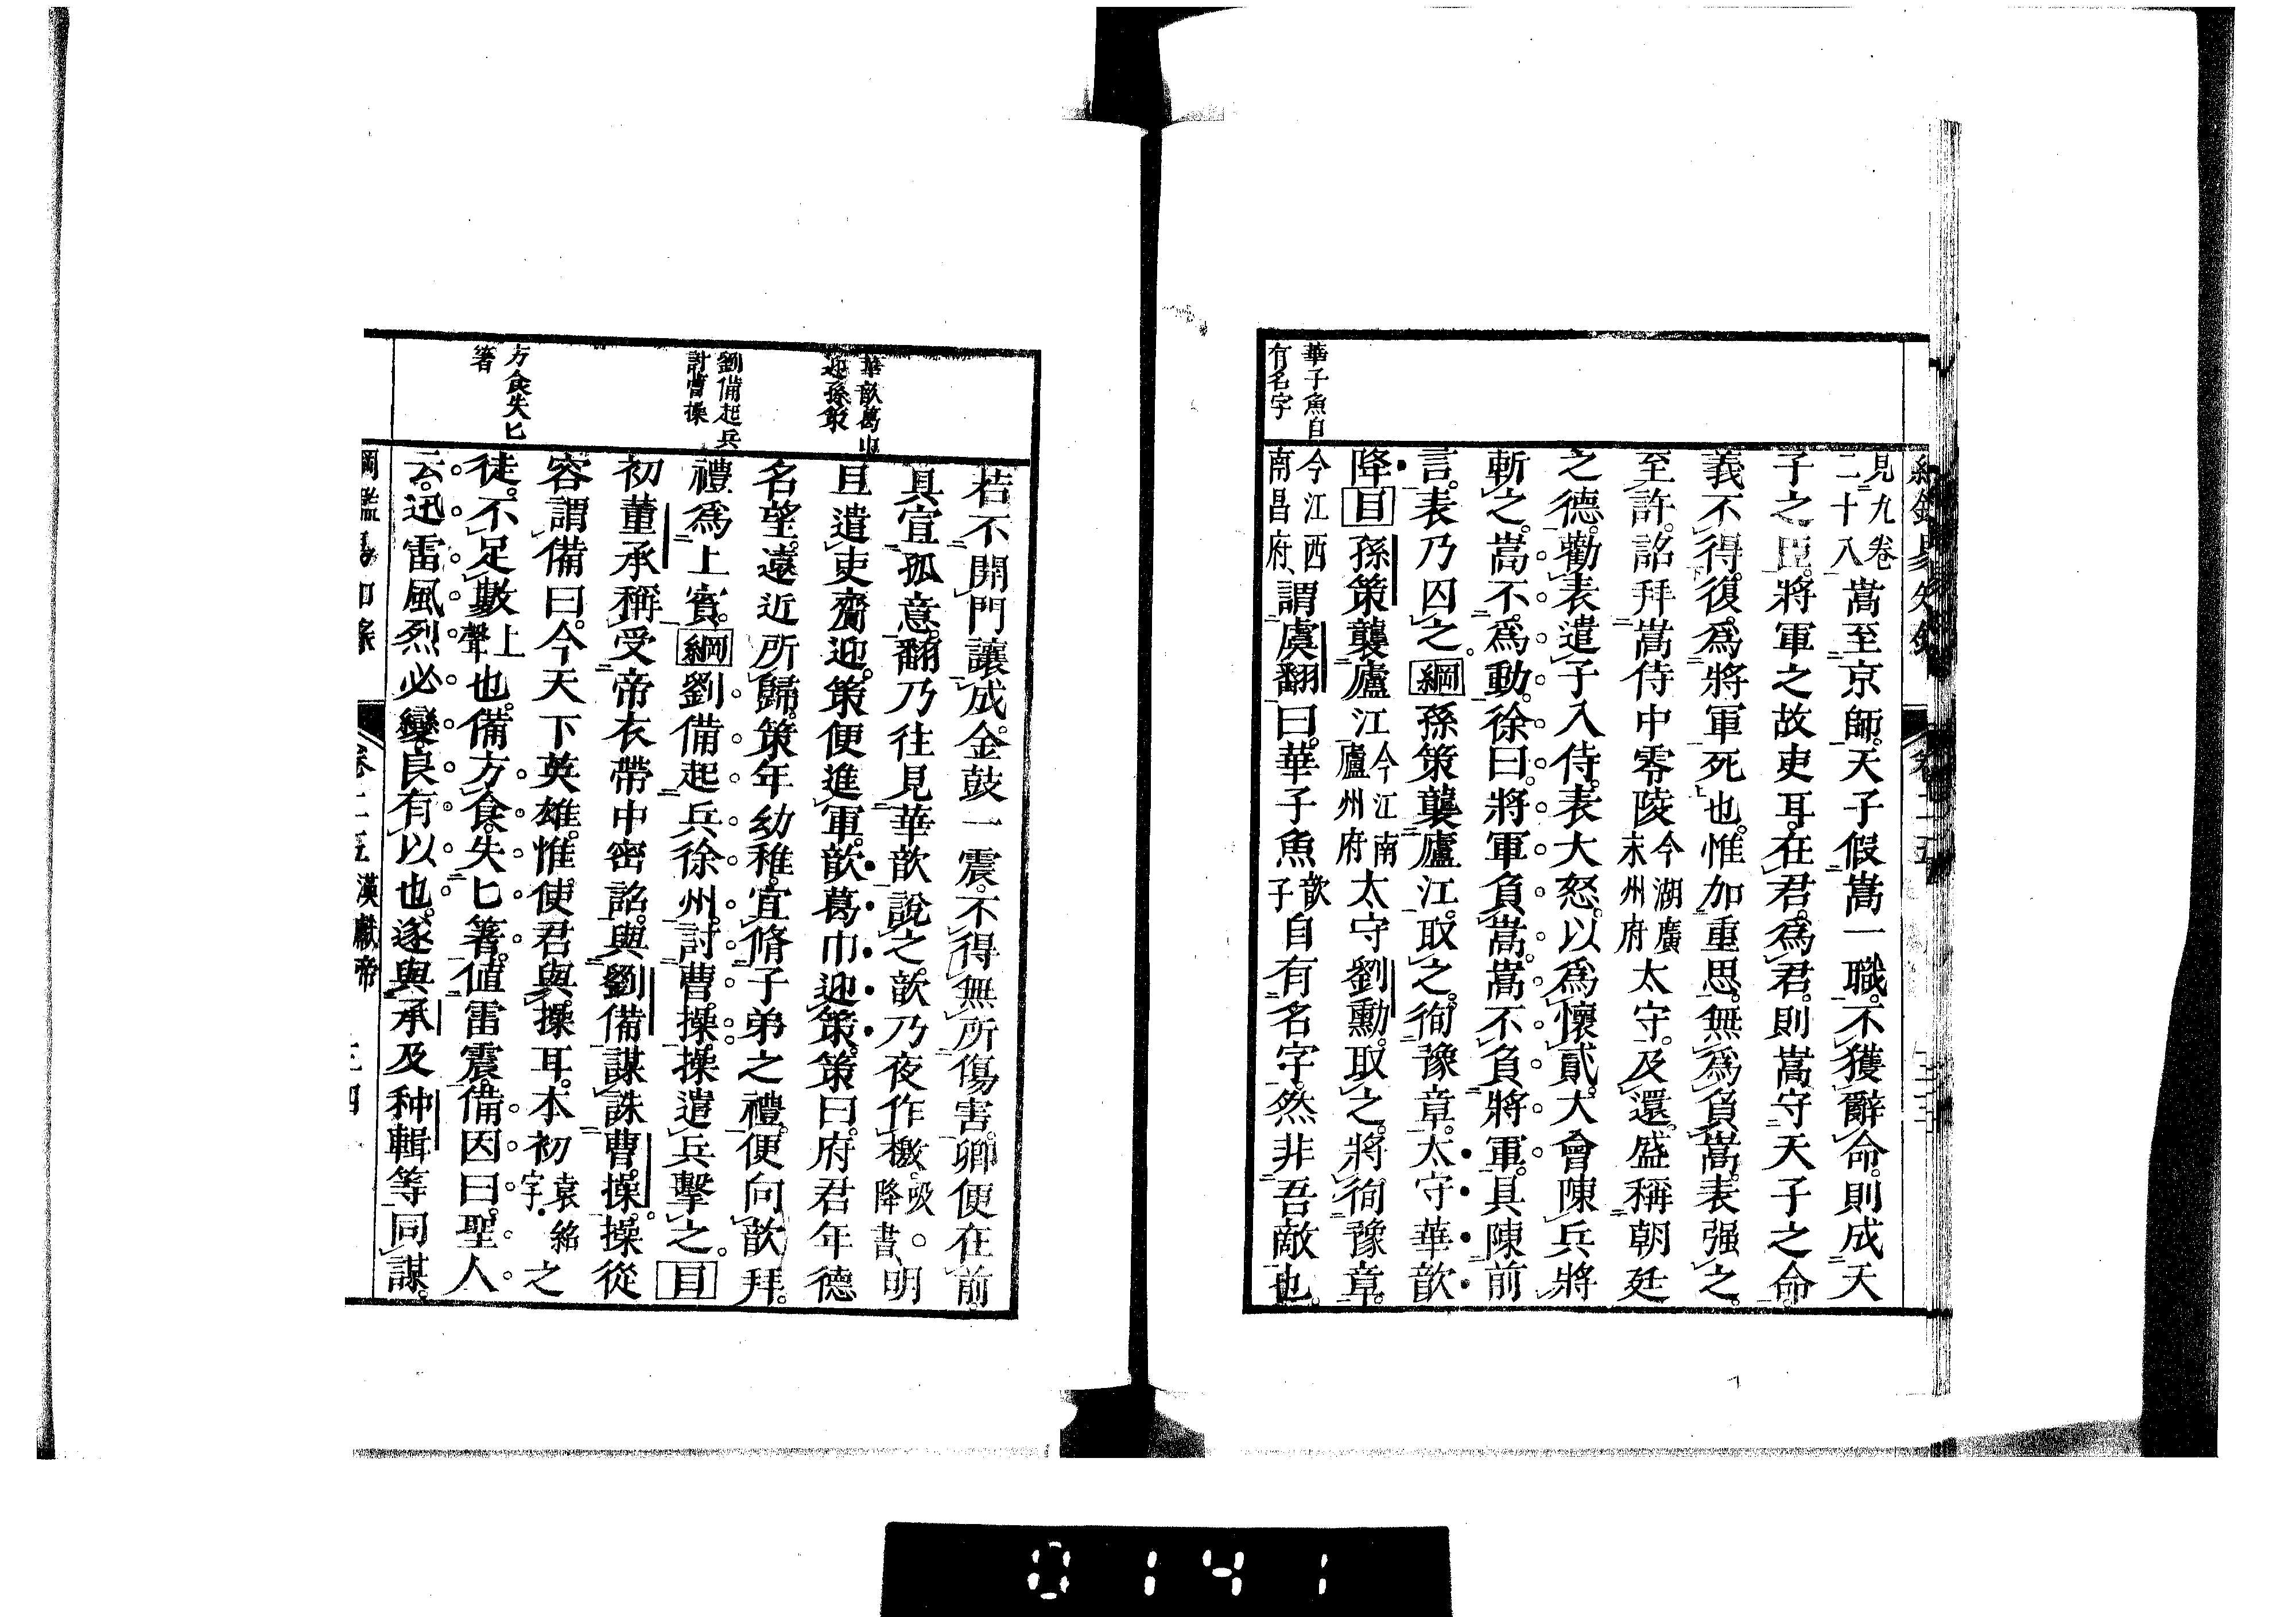 見九卷
二十八嵩至京師。天子假嵩一職。不獲辭命。則成天
子之臣。將軍之故吏耳。在君。爲君。則嵩守天子之命。
義不得復爲將軍死也。惟加重思。無爲負嵩。表强之。
至許。詔拜嵩侍中零陵今湖廣永州府太守。及還。盛稱朝廷
之德。勸表遣子入侍。表大怒。以爲懷貳。大會陳兵。將
斬之。嵩不爲動。徐曰。將軍負嵩。嵩不負將軍。具陳前
言。表乃囚之。綱孫策襲廬江。取之。徇豫章。太守華歆
降。目孫策襲廬江今江南廬州府太守劉勳。取之。將徇豫章。
今江西南昌府、謂虞翻曰。華子魚歆子自有名字。然非吾敵也。
華子魚自
有名字
若不開門讓成。金鼓一震。不得無所傷害。卿便在前。
具宣孤意。翻乃往見華歆說之。歆乃夜作檄。降書、明
且遣吏齎迎。策便進軍。歆葛巾迎策。策曰。府君年德
名望。遠近所歸。策年幼稚。宜脩子弟之禮。便向歆拜。
禮爲上賓。綱劉備起兵徐州。討曹操。操遣兵擊之。目
初董承稱受帝衣帶中密詔。與劉備謀誅曹操。操從
容謂備曰。今天下英雄。惟使君與操耳。本初袁紹字之
徒。不足數上聲也。備方食。失匕箸。値雷震。備因曰。聖人
云。迅雷風烈必變。良有以也。遂與承及种輯等同謀。
華歆葛巾
迎孫策
劉備起兵
討曹操
方食失匕
箸
漢獻帝
0141